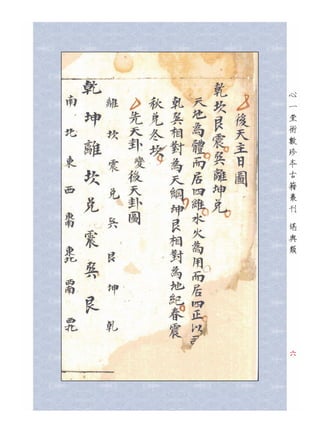 心一堂術數珍本古籍叢刊 堪輿類
六
後天主日圖
乾坎艮震巽離坤兌
天地為體而居四維水火為用而居四正以
乾巽相對為天綱坤艮相對為地紀春震
秋兌冬坎
先天卦變後天卦圖
離坎震兌巽艮坤乾
乾坤離坎兌震巽艮
南北東西東南東北西南西北